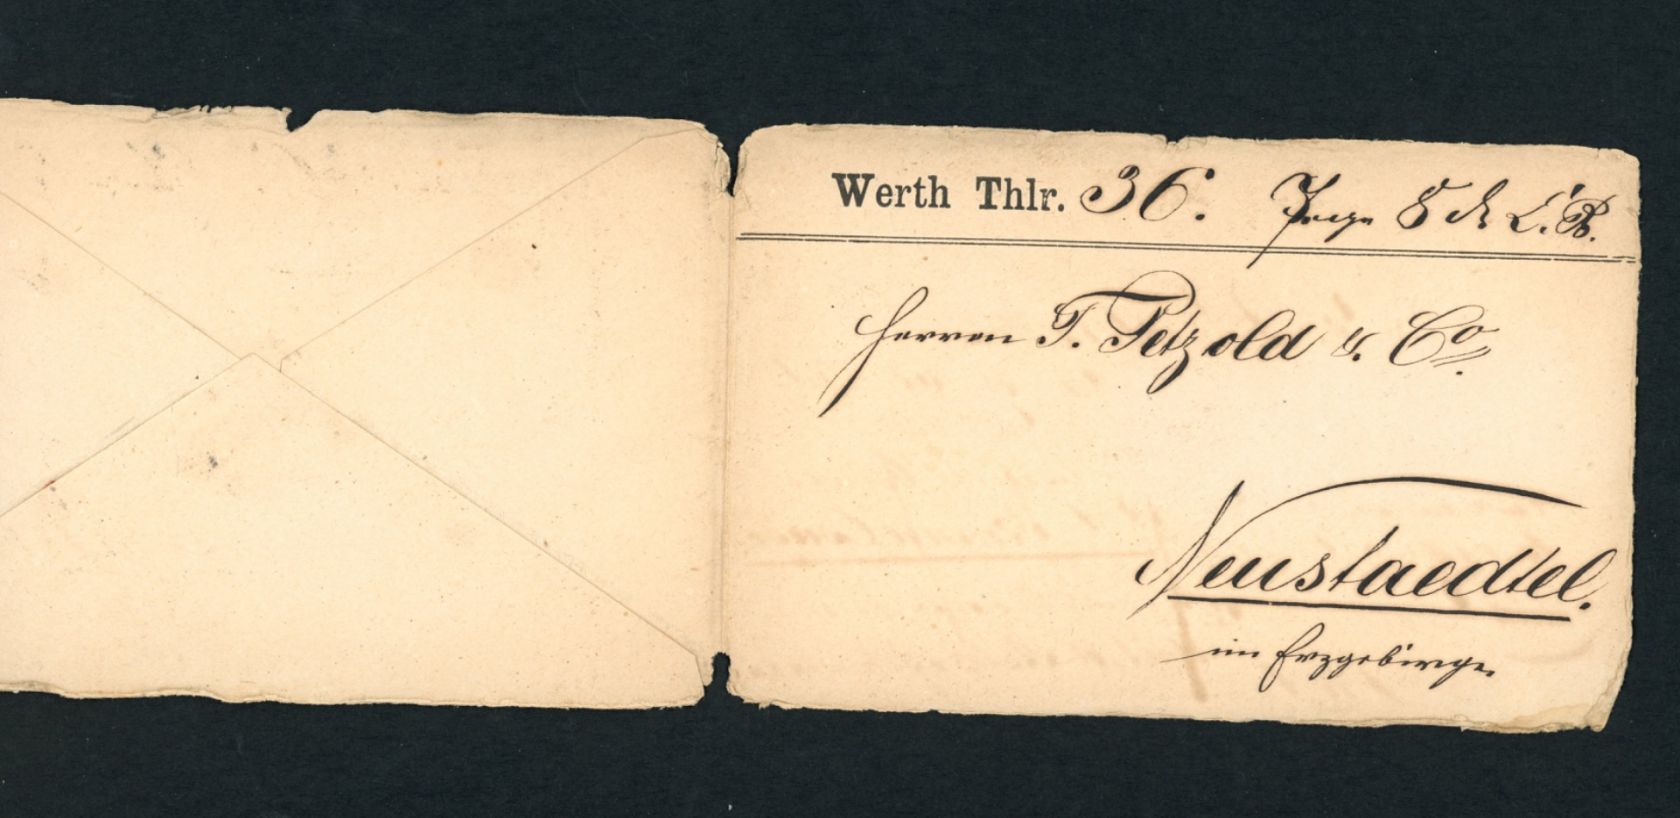 Werth Thlr. 36.
Herren T. Petzold & Co.
Neustaedtel.
im Erzgebirge.